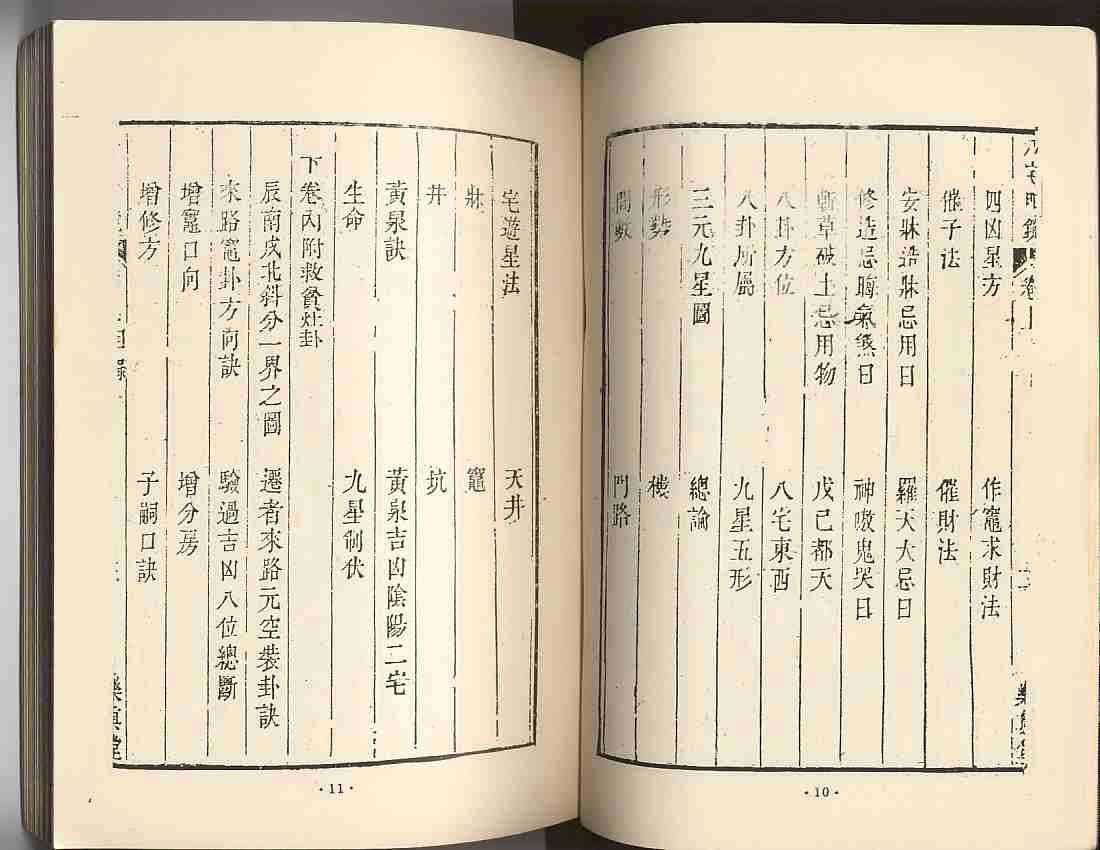 八宅明鏡 卷上
樂真堂
四凶星方 作竈求財法
催子法 催財法
安牀造牀忌用日 羅天大忌日
修造忌晦氣煞日 神嗷鬼哭日
斬草破土忌用物 戊己都天
八卦方位 八宅東西
八卦所屬 九星五形
三元九星圖 總論
形勢 穢
間數 門路
·10·
宅遊星法 天井
牀 竈
井 坑
黃泉訣 黃泉吉凶陰陽二宅
生命 九星制伏
下卷內附救貧灶卦
辰南戌北斜分一界之圖 遷者來路元空裝卦訣
來路竈卦方向訣 驗過吉凶八位總斷
增竈口向 增分房
增修方 子嗣口訣
樂真堂
·11·